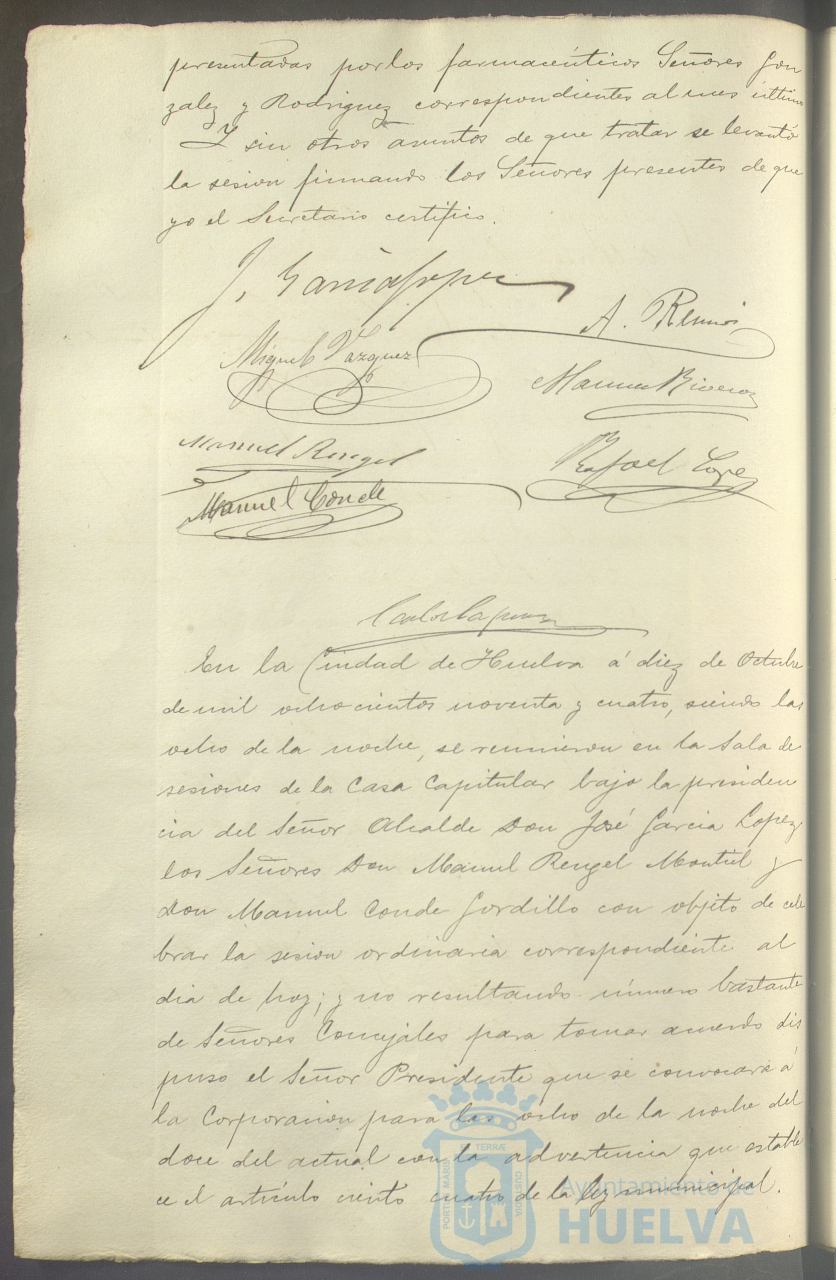 presentadas por los farmacéuticos Señores Gon
zalez y Rodriguez correspondientes al mes último
Y sin otros asuntos de que tratar se levantó
la sesion firmando los Señores presentes de que
yo el Secretario certifico.
J. Garcia Lopez
A.
Miguel Vazquez
Manuel
Manuel Rengel
Rafael Lopez
Manuel Conde
Carlos
En la Ciudad de Huelva á diez de Octubre
de mil ochocientos noventa y cuatro, siendo las
ocho de la noche, se reunieron en la Sala de
sesiones de la Casa Capitular bajo la presiden
cia del Señor Alcalde Don José Garcia Lopez,
los Señores Don Manuel Rengel Montiel y
Don Manuel Conde Gordillo con objeto de cele
brar la sesion ordinaria correspondiente al
dia de hoy; y no resultando número bastante
de Señores Concejales para tomar acuerdo dis
puso el Señor Presidente que se convocara á
la Corporacion para las ocho de la noche del
doce del actual con la advertencia que estable
ce el artículo ciento cuatro de la ley municipal.
PORTUS MARIS
TERRÆ
CUSTODIA
Ayuntamiento de
HUELVA